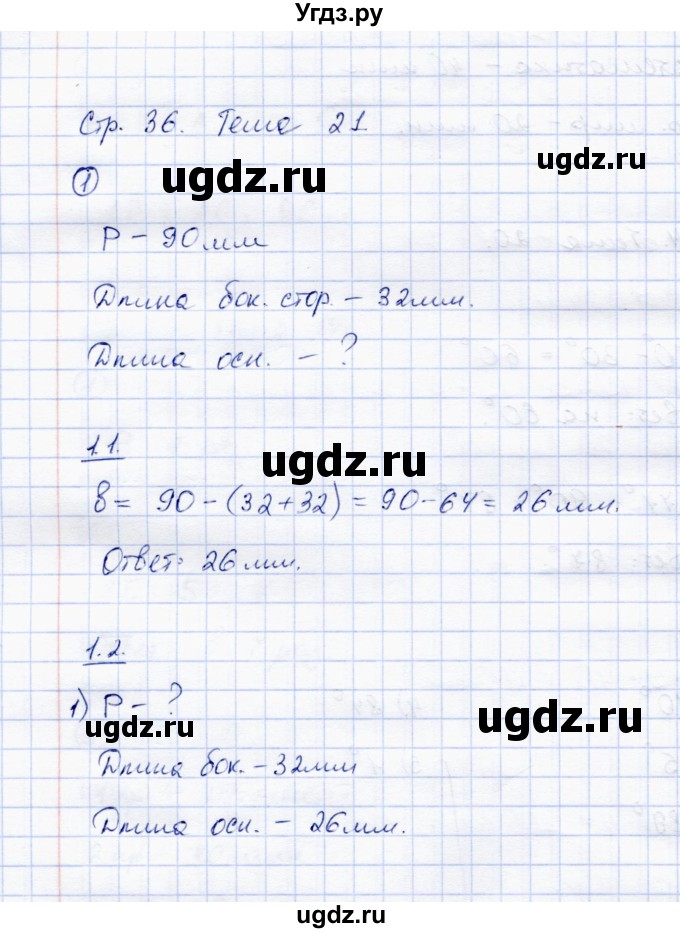 Угдз.ру
Стр. 36. Тема 21
1
ugdz.ru
ugdz.ru
P – 90 мм
Длина бок. стор. – 32 мм.
Длина осн. – ?
1.1.
ugdz.ru
в = 90 – (32 + 32) = 90 – 64 = 26 мм.
Ответ: 26 мм.
ugdz.ru
1.2.
1) P – ?
ugdz.ru
ugdz.ru
Длина бок. – 32 мм
Длина осн. – 26 мм.
ugdz.ru
ugdz.ru